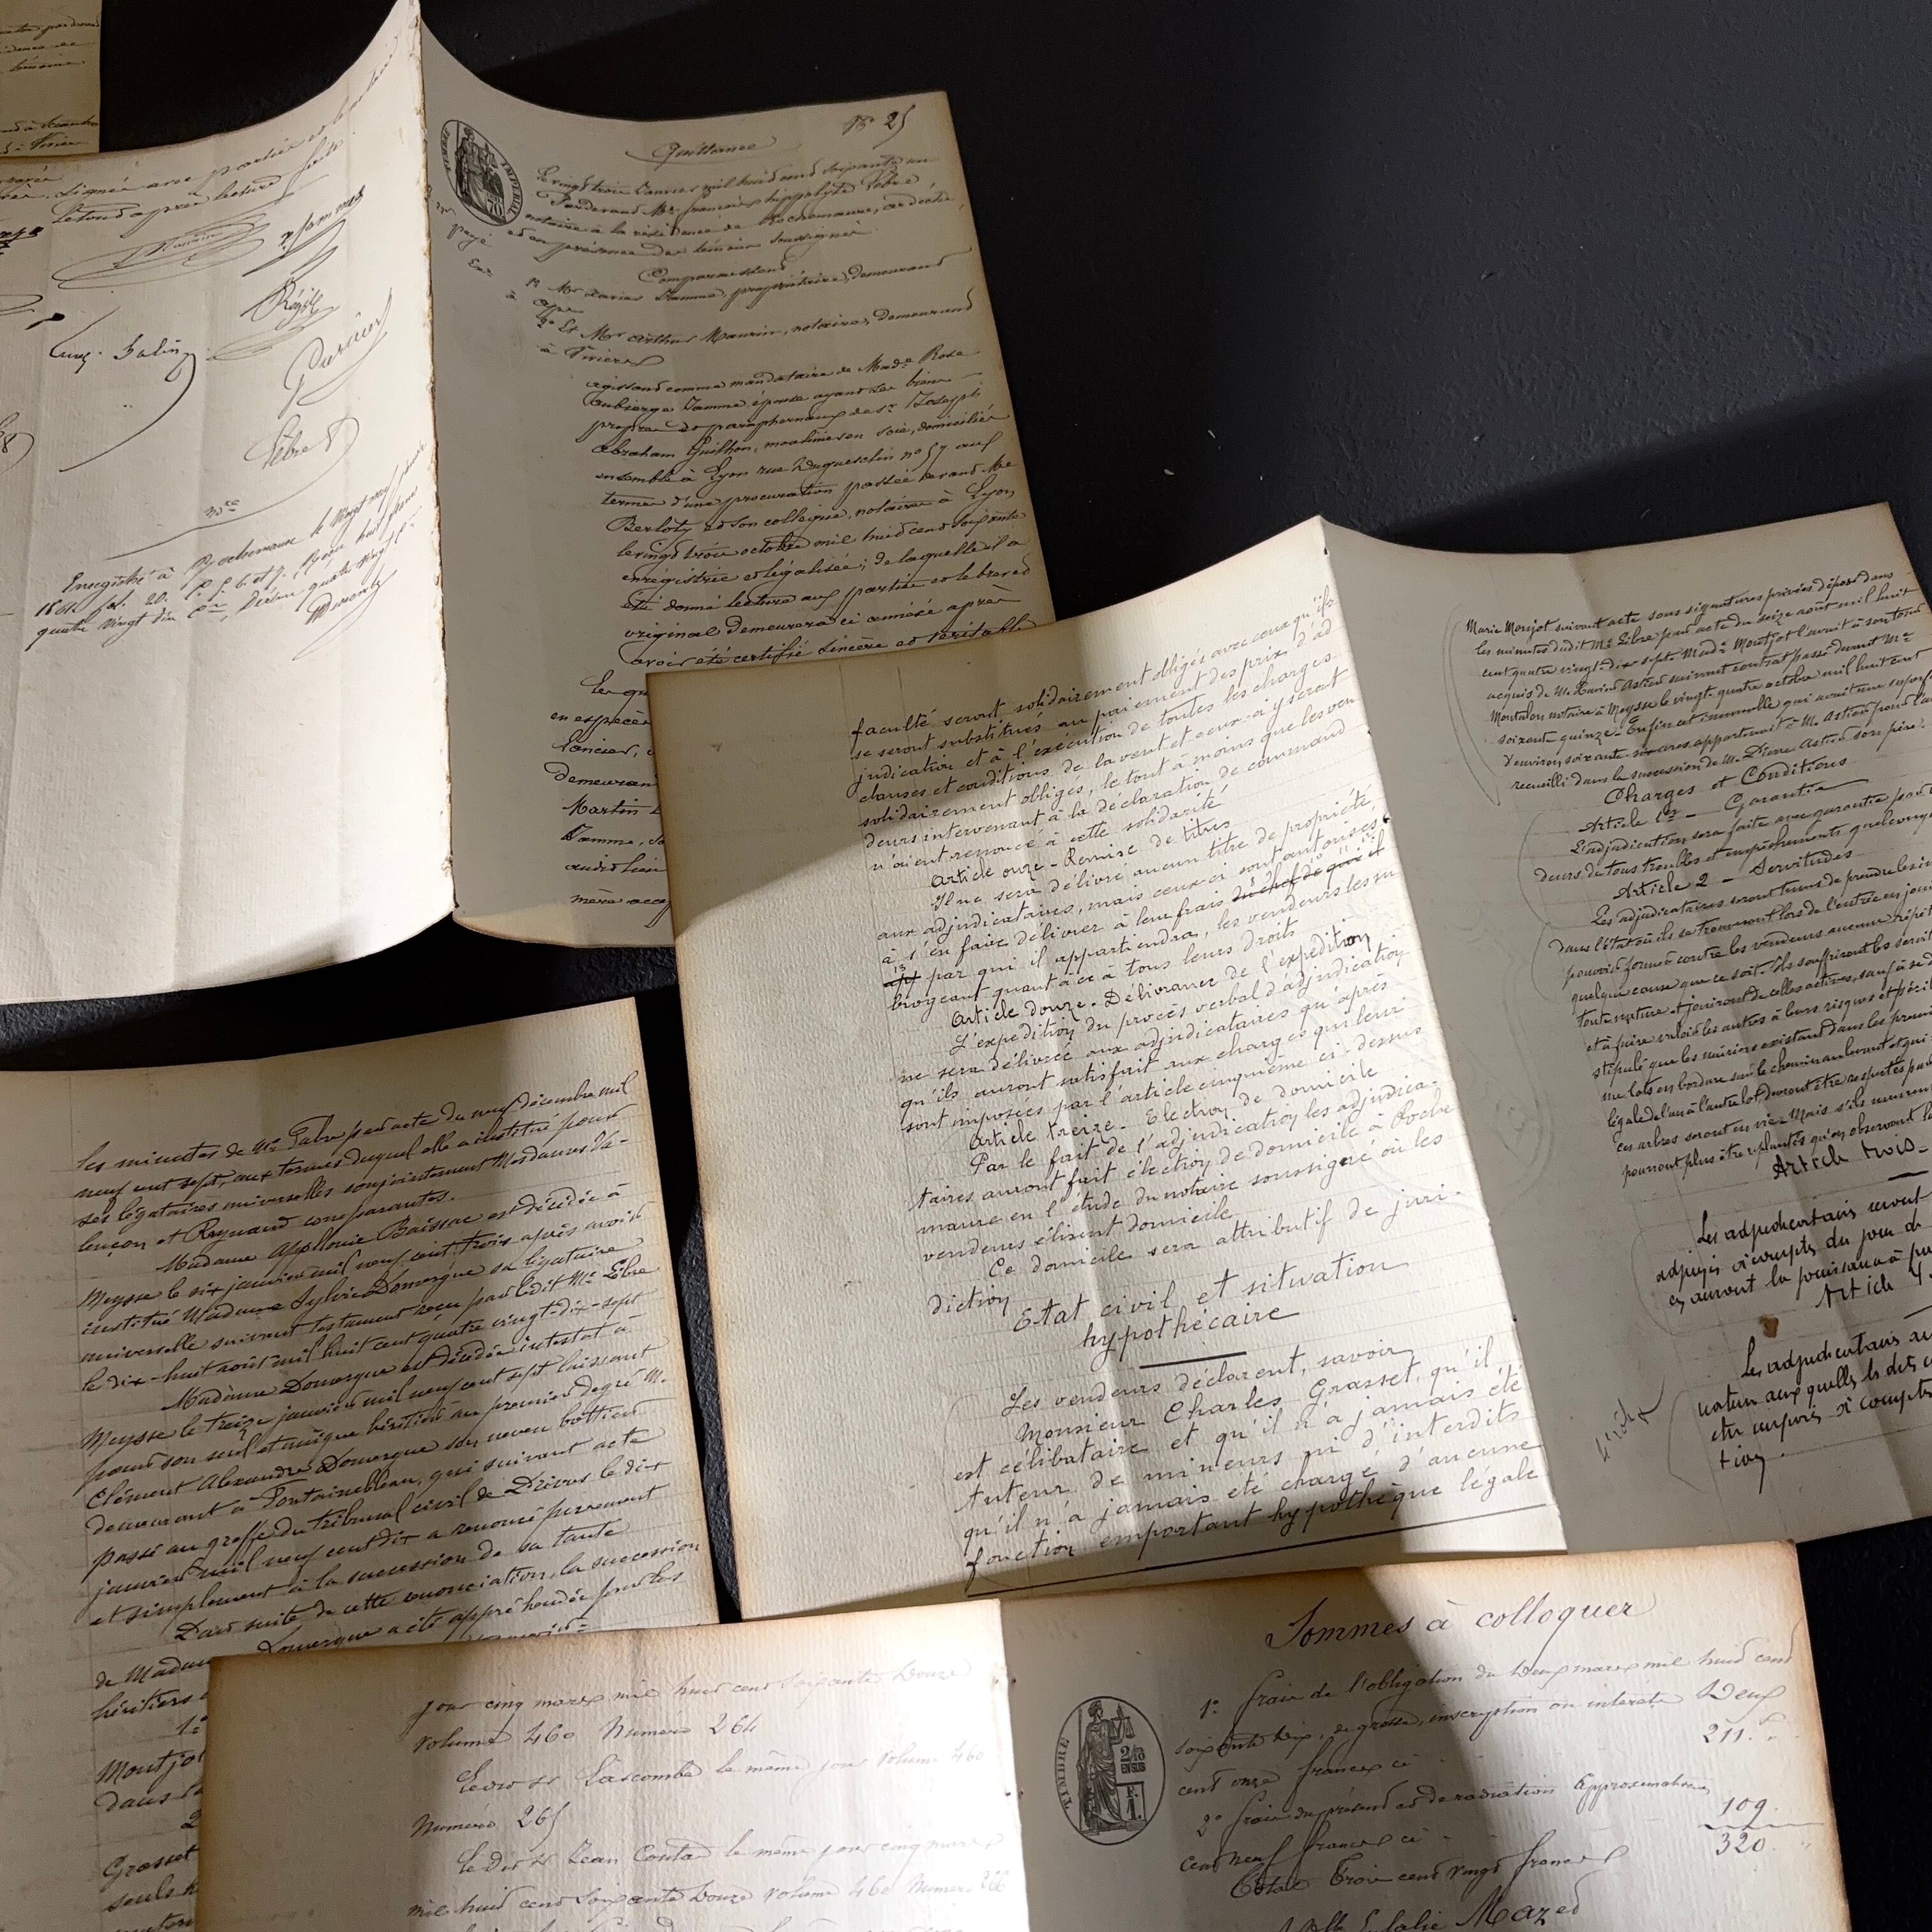 signée avec parties et
le tout après lecture faite
Régis
Lebre
Enregistré à Rochemaure le vingt neuf janvier
quatre vingt dix
Quittance
N° 25
TIMBRE IMPERIAL
70
Le vingt trois Janvier mil huit cent soixante un
Pardevant Me françois hippolyte Lebre
notaire à la résidence de Rochemaure, ardèche,
et en présence des témoins soussignés
Comparaissent
1° Mr Xavier Jamme, propriétaire, demeurant
à
2° Et Mr Arthur Maurin, notaire, demeurant
à Viviers
agissant comme mandataire de Made Rose
Jamme, épouse ayant ses biens
propres et paraphernaux de Sr Joseph
Abraham Guilhon, moulinier en soie, domiciliés
ensemble à Lyon rue Duguesclin n° 57 aux
termes d'une procuration passée devant Me
Berloty et son collègue, notaires à Lyon
le vingt trois octobre mil huit cent soixante
enregistrée et légalisée; de laquelle il a
été donné lecture aux parties et le brevet
original demeurera ci annexé après
avoir été certifié sincère et véritable
Les
en espèces
foncier,
demeurant
Martin
Jamme,
audit lieu
mère
faculté seront solidairement obligés avec ceux qu'ils
se seront substitués au paiement des prix d'ad
judication et à l'exécution de toutes les charges
clauses et conditions de la vente et ceux-ci y seront
solidairement obligés, le tout à moins que les ven
deurs intervenant à la déclaration de command
n'aient renoncé à cette solidarité
Article onze - Remise de titres
Il ne sera délivré aucun titre de propriété
aux adjudicataires, mais ceux-ci sont autorisés
à s'en faire délivrer à leur frais du chef de qui il
par qui il appartiendra, les vendeurs les su
brogeant quant à ce à tous leurs droits
Article douze. Délivrance de l'expédition
L'expédition du procès verbal d'adjudication
ne sera délivrée aux adjudicataires qu'après
qu'ils auront satisfait aux charges qui leur
sont imposées par l'article cinquième ci-dessus
Article treize. Election de domicile
Par le fait de l'adjudication les adjudica-
taires auront fait élection de domicile à Roche
maure en l'étude du notaire soussigné où les
vendeurs élisent domicile
Ce domicile sera attributif de juri-
diction
Etat civil et situation
hypothécaire
Les vendeurs déclarent, savoir
Monsieur Charles Grasset, qu'il
est célibataire et qu'il n'a jamais été
tuteur de mineurs ni d'interdits
qu'il n'a jamais été chargé d'aucune
fonction emportant hypothèque légale
Marie Monjot suivant acte sous signatures privées déposé dans
les minutes dudit Me Lèbre par acte du seize août mil huit
cent quatre vingt dix sept. Made Montjot l'avait à son tour
acquis de M. Xavier Astier suivant contrat passé devant Me
Montalon notaire à Meysse le vingt quatre octobre mil huit cent
soixante quinze - Enfin cet immeuble qui avait une superf
d'environ soixante six ares appartenait à M. Astier pour l'a
recueilli dans la succession de M. Pierre Astier son père.
Charges et Conditions
Article 1er - Garantie
L'adjudication sera faite avec garantie par
deurs de tous troubles et empêchements quelconqu
Article 2 - Servitudes
Les adjudicataires seront tenus de prendre les
dans l'état où ils se trouveront lors de l'entrée en joui
pouvoir former contre les vendeurs aucune répét
quelque cause que ce soit. Ils souffriront les servit
toute nature et jouiront de celles actives, sauf à se d
et à faire valoir les autres à leurs risques et péril
stipulé que les mûriers existant dans les premi
me lots en bordure sur le chemin au levant et qui
légale de l'un à l'autre lot devront être respectés
Ces arbres seront en vie. Mais s'ils meurent
pourront plus être replantés qu'en observant la
Article trois -
Les adjudicataires seront
adjugés à compter du jour de
en auront la jouissance à pa
Article 4.
Les adjudicataires
nature aux quelles les dits
être imposés à compter
tion.
les minutes de Me Fabre par acte du neuf décembre mil
neuf cent sept, aux termes duquel elle a institué pour
ses légataires universelles conjointement Mesdames Va-
lençon et Reynaud comparantes.
Madame Appolonie Baissac est décédée à
Meysse le six janvier mil neuf cent trois après avoir
institué Madame Sylvie Domergue sa légataire
universelle suivant testament reçu par ledit Me Lèbre
le dix-huit août mil huit cent quatre vingt-dix-sept
Madame Domergue est décédée intestat à
Meysse le treize janvier mil neuf cent sept laissant
pour son seul et unique héritier au premier degré M.
Clément Alexandre Domergue son neveu bottier
demeurant à Fontainebleau, qui suivant acte
passé au greffe du tribunal civil de Privas le dix
janvier mil neuf cent dix a renoncé purement
et simplement à la succession de sa tante
Par suite de cette renonciation, la succession
de Madame Domergue a été appréhendée par les
héritiers
1°
Montjo
dans la
2
Grasset
seuls h
jour cinq mars mil huit cent soixante douze
Volume 460 Numéro 264
Ledit Sr Lascombe le même jour Volume 460
Numéro 265
Ledit Sr Jean Coutad le même jour cinq mars
mil huit cent soixante douze volume 460 Numéro 266
Sommes à colloquer
TIMBRE
2/10
EN SUS
F.
1.
1° frais de l'obligation du deux mars mil huit cent
soixante dix, de grosse, inscription ou intérêts Deux
cent onze francs ci 211.
2° frais du présent et de radiation Approximativement
cent neuf francs ci 109.
Total Trois cent vingt francs 320
Mlle Eulalie Mazed